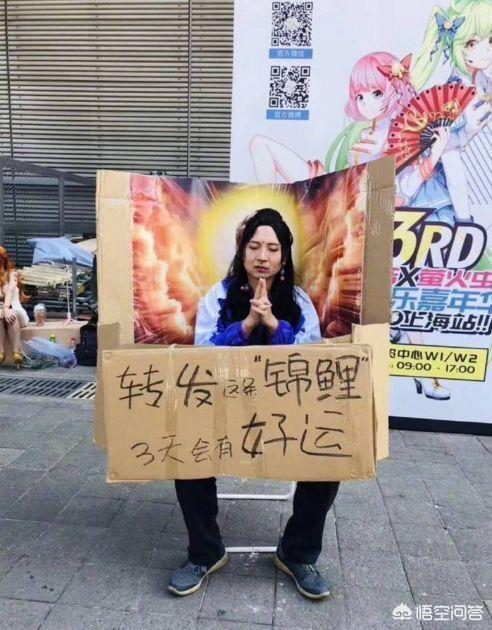 官方微信
官方微博
3RD
X萤火虫
乐嘉年华
上海站!!
中心W1/W2
09:00 - 17:00
转发这条“锦鲤”
3天会有好运
悟空问答